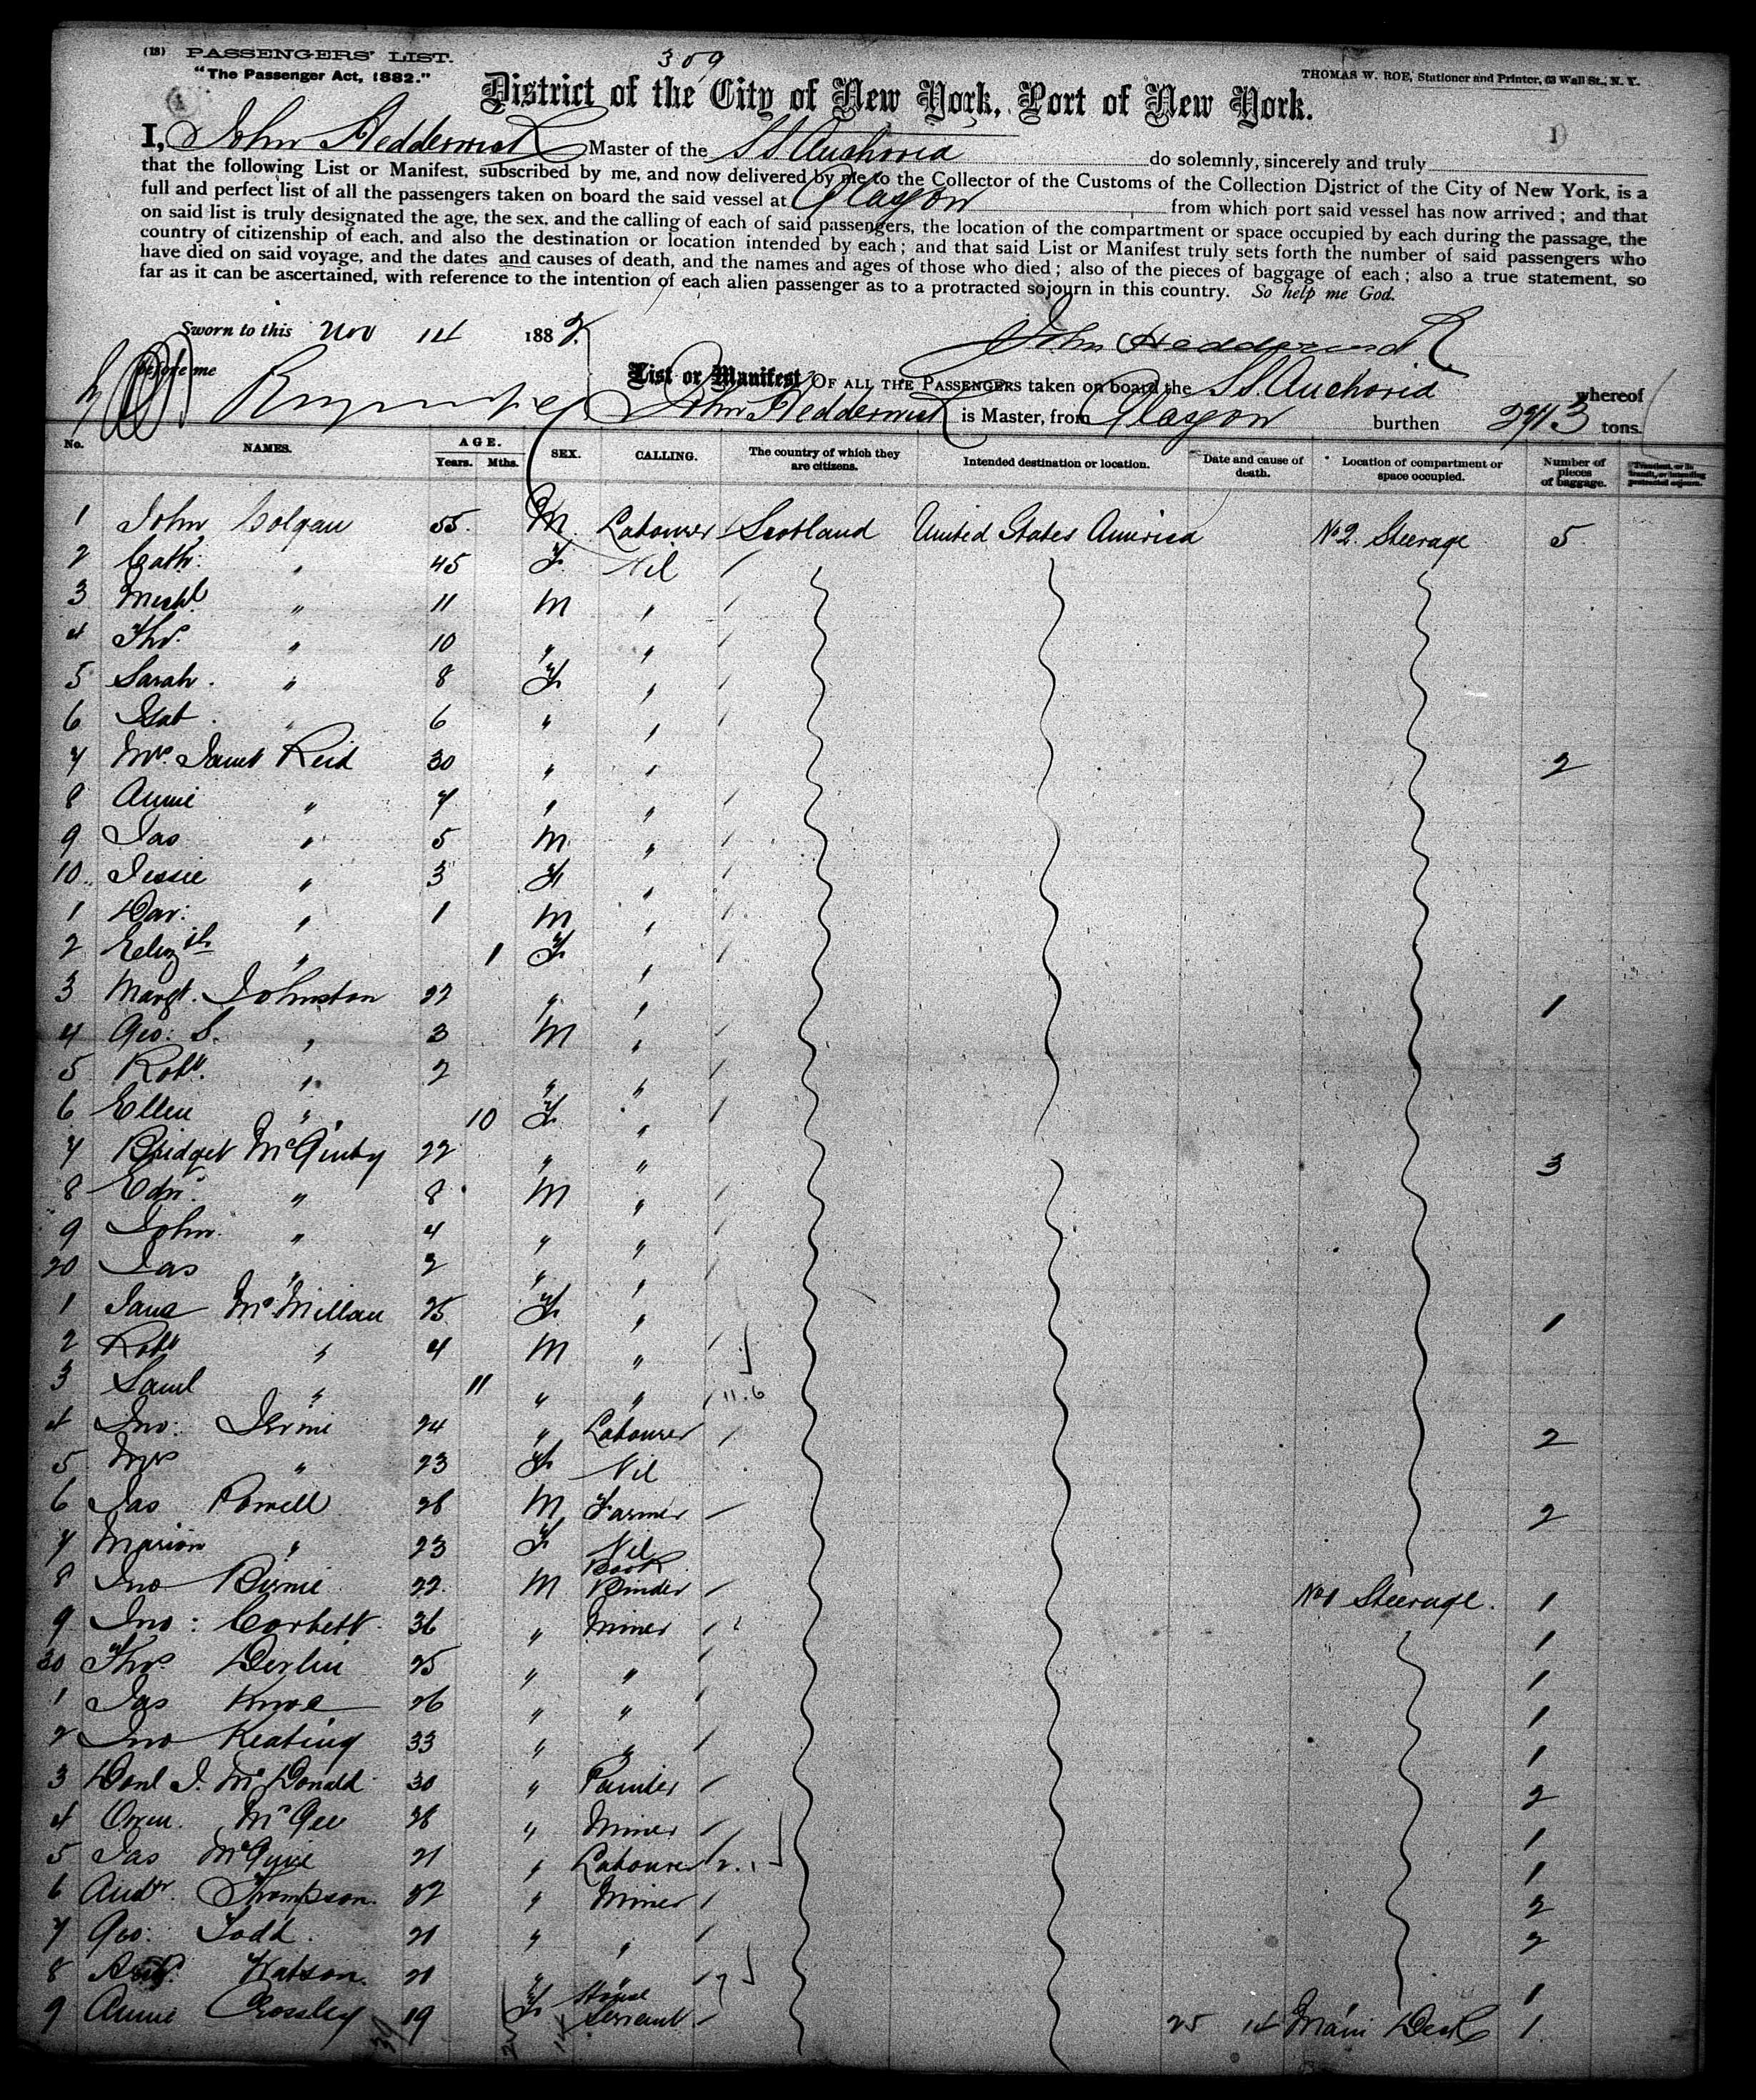 (18) PASSENGERS' LIST.
309
"The Passenger Act, 1882."
THOMAS W. ROE, Stationer and Printer, 63 Wall St., N. Y.
District of the City of New York, Port of New York.
1
I, John Hedderwick Master of the SS. Anchoria do solemnly, sincerely and truly
that the following List or Manifest, subscribed by me, and now delivered by me to the Collector of the Customs of the Collection District of the City of New York, is a
full and perfect list of all the passengers taken on board the said vessel at Glasgow from which port said vessel has now arrived; and that
on said list is truly designated the age, the sex, and the calling of each of said passengers, the location of the compartment or space occupied by each during the passage, the
country of citizenship of each, and also the destination or location intended by each; and that said List or Manifest truly sets forth the number of said passengers who
have died on said voyage, and the dates and causes of death, and the names and ages of those who died; also of the pieces of baggage of each; also a true statement, so
far as it can be ascertained, with reference to the intention of each alien passenger as to a protracted sojourn in this country. So help me God.
Sworn to this Nov 14 188
John Hedderwick
before me
List or Manifest OF ALL THE PASSENGERS taken on board the SS. Anchoria whereof
John Hedderwick is Master, from Glasgow burthen tons.
No. NAMES. AGE. Years. Mths. SEX. CALLING. The country of which they are citizens. Intended destination or location. Date and cause of death. Location of compartment or space occupied. Number of pieces of baggage.
1 John Colgan 55 M Labourer Scotland United States America No 2 Steerage 5
2 Cath: " 45 F Nil
3 Michl " 11 M "
4 Thos " 10 " "
5 Sarah " 8 F "
6 Isab " 6 " "
7 Mrs Janet Reid 30 " " 2
8 Annie " 7 " "
9 Jas " 5 M "
10 Jessie " 3 F "
1 Dav: " 1 M "
2 Elizth " 1 F "
3 Margt. Johnston 22 " " 1
4 Geo: S. " 3 M "
5 Robt. " 2 " "
6 Ellen " 10 F "
7 Bridget McGinty 22 " " 3
8 Edwd " 8 M "
9 John " 4 " "
20 Jas " 2 " "
1 Jane McMillan 25 F " 1
2 Robt " 4 M "
3 Saml " 11 " " 11.6
4 Jno: Irvine 24 " Labourer 2
5 Mrs " 23 F Nil
6 Jas Powell 28 M Farmer 2
7 Marion " 23 F Nil
8 Jno Birnie 22 M Book Binder No 1 Steerage 1
9 Jno: Corbett 36 " Miner 1
30 Thos Devlin 25 " " 1
1 Jas 26 " " 1
2 Jno Keating 33 " " 1
3 Donl J. McDonald 30 " Painter 2
4 Owen McGee 28 " Miner 1
5 Jas McGuire 21 " Labourer 1
6 Andw. Thompson 22 " Miner 2
7 Geo: Todd 21 " " 2
8 Watson 21 " " 1
9 Annie Crossley 19 F House Servant 25 14 Main Deck 1
39